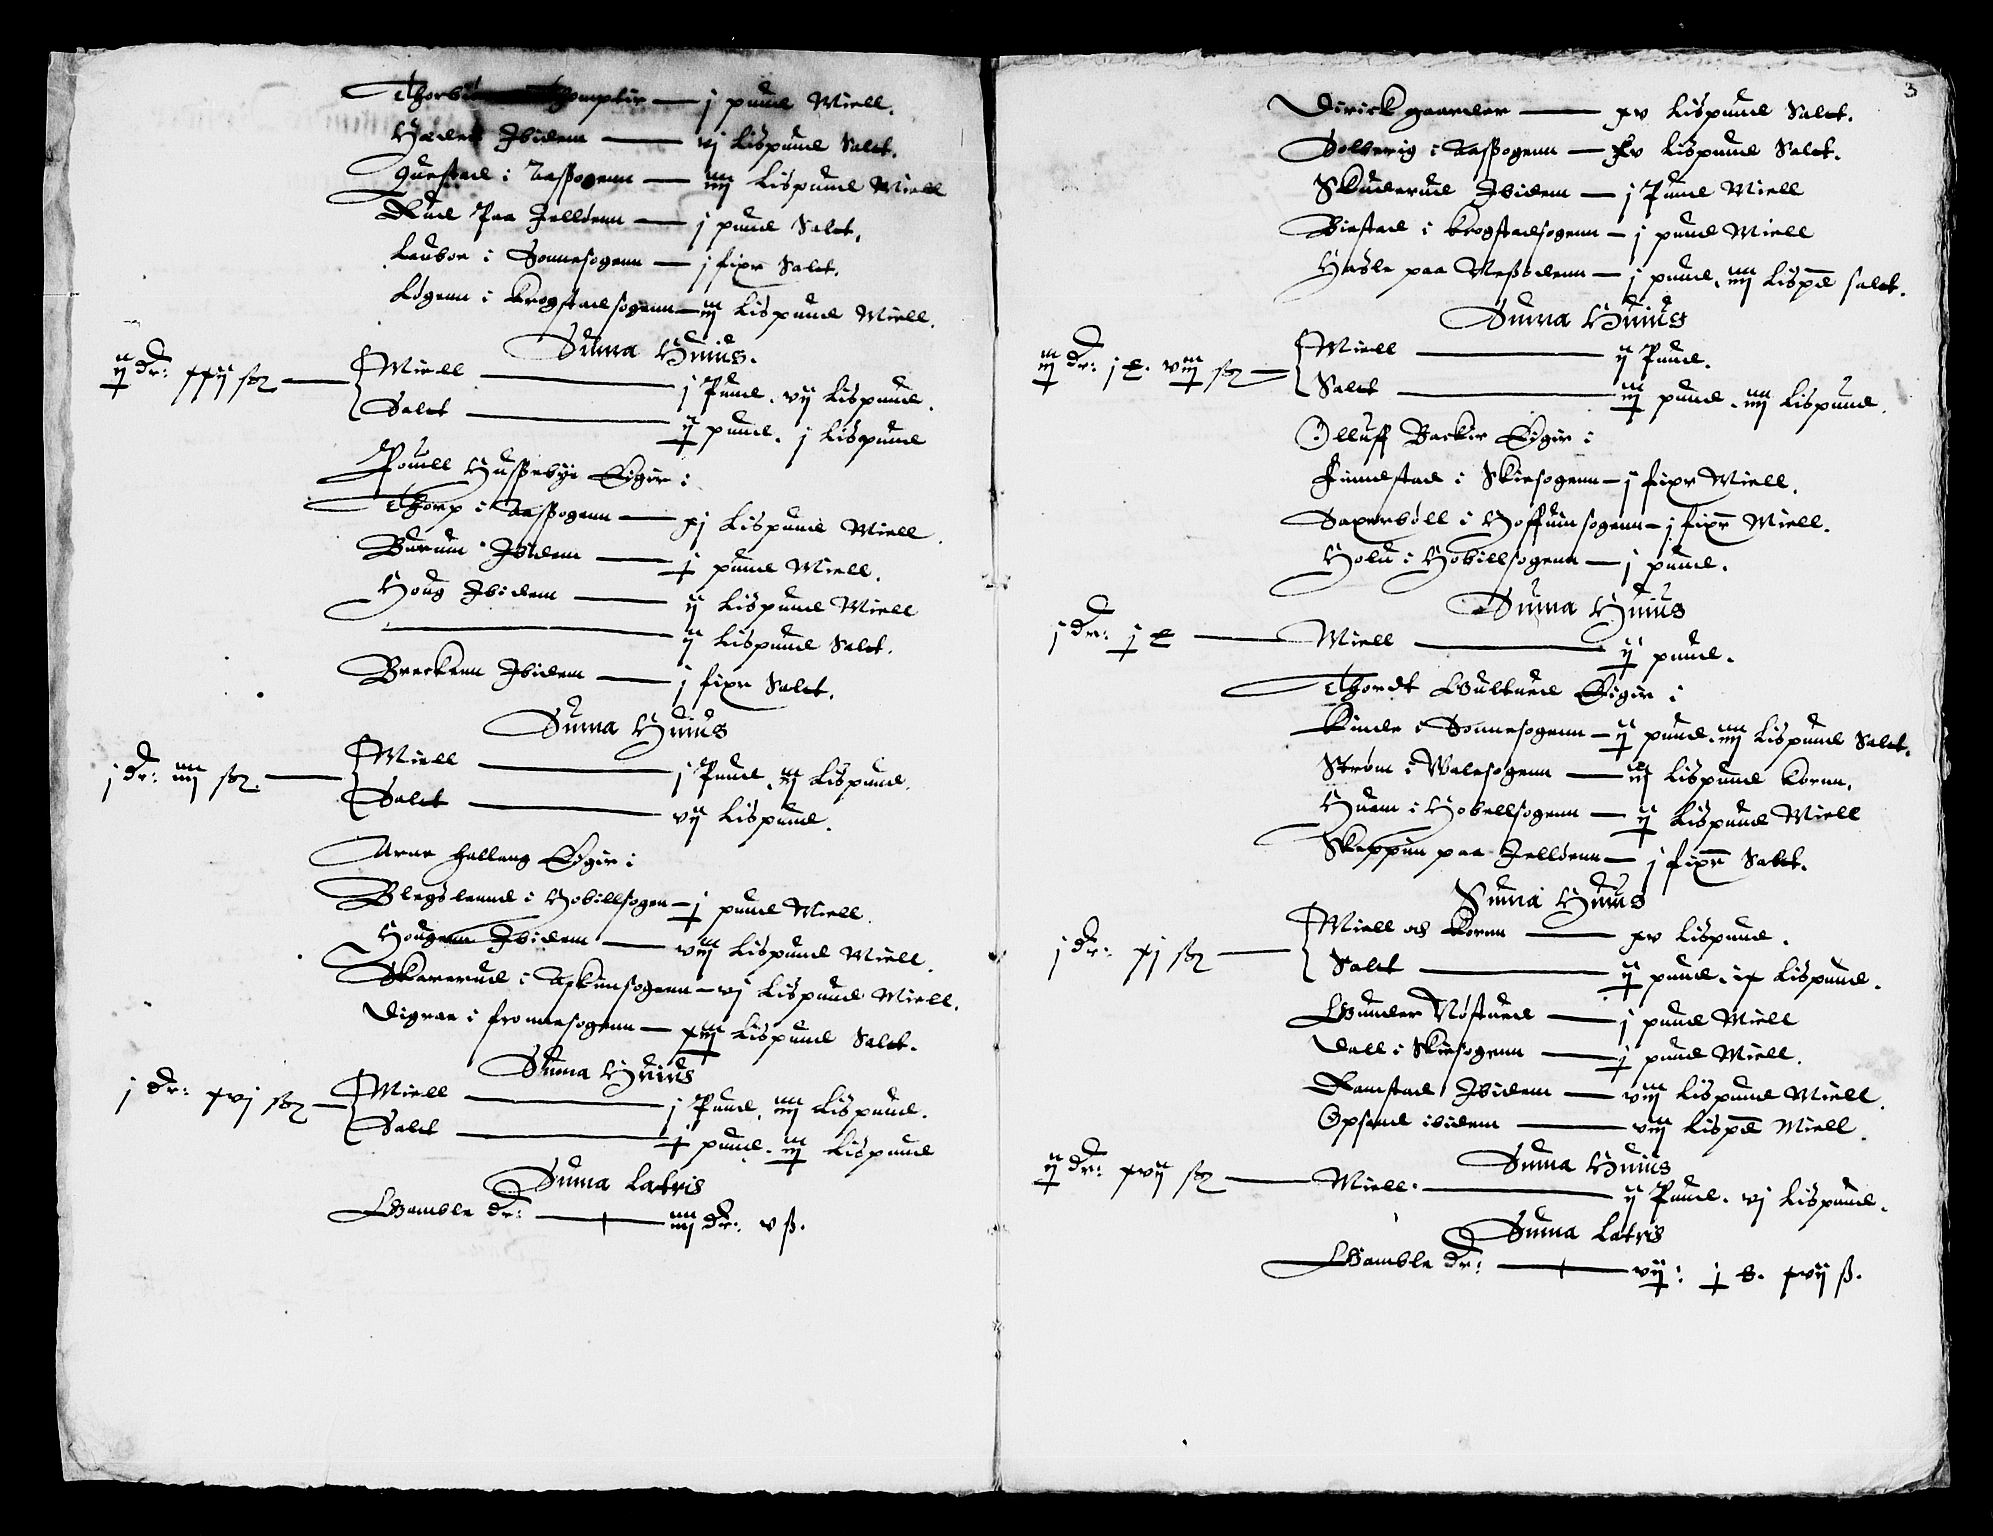 j pund Miell.
Ibidem — vj Lispund Saltt.
i Aassogenn — iiij Lispund Miell
Rud Paa Jelløenn — j pund Saltt.
Laubor i Sonnesogenn — j fixr Saltt.
Løgenn i Krogstadsogenn — iij Lispund Miell.
Suma Huius.
ij dr: xxij sz — Miell — j Pund. vij Lispund.
Saltt — ij pund. j Lispund
Pouell Hussebye Eiger i
Thorp i Aassogenn — xj Lispund Miell.
Burum Ibidem — j pund Miell.
Houg Ibidem — ij Lispund Miell
— ij Lispund Saltt.
Breckenn Ibidem — j fixr Saltt.
Suma Huius
j dr: iiij sz. — Miell — j Pund. iij Lispund.
Saltt — vij Lispund.
Arne Hallang Eiger i
Blegslannd i Hobillsogen — j pund Miell.
Hougenn Ibidem — viij Lispund Miell.
Skarerud i Askimsogenn — vj Lispund Miell.
Digrae i fronnesogenn — xiij Lispund Saltt.
Suma Huius
j dr: xvj sz — Miell — j Pund. iiij Lispund.
Saltt — j pund. iij Lispund
Suma Latris
Gamble dr: — iiij dr: v ß.
3
Dirick gaarder — xv Lispund Saltt.
Solberig i Aassogenn — xv Lispund Saltt.
Skuderud Ibidem — j Pund Miell
Biestad i Krogstadsogenn — j pund Miell
Hasle paa Nessodenn — j pund. iiij Lispd saltt.
Suma Huius
iij dr: j t. viij sz — Miell — ij Pund.
Saltt — iij pund. iiij Lispund.
Olluff Backer Eiger i
Finnestad i Skiesogenn — j fixr Miell.
Saxerbøll i Hoffuinsogenn — j fixr Miell.
Holu i Hobillsogenn — j pund.
Suma Huius
j dr: j t — Miell — ij pund.
Thordt Eiger i
Kinde i Sonnesogenn — ij pund. iiij Lispund Saltt.
Strøm i Walesogenn — iij Lispund Kornn.
Huem i Hobellsogenn — ij Lispund Miell
Skeppin paa Jelløenn — j fixr Saltt.
Suma Huius
j dr: xj sz — Miell och Kornn — xv Lispund.
Saltt — ij pund. ix Lispund.
Gunder Nøstued — j pund Miell
Dall i Skiesogenn — j pund Miell.
Ramstad Ibidem — viij Lispund Miell.
Opsand ibidem — viij Lispd Miell.
Suma Huius
ij dr: xvij sz — Miell. — ij Pund. vj Lispund.
Suma Latris
Gamble dr: — vij: j t. xvij ß.